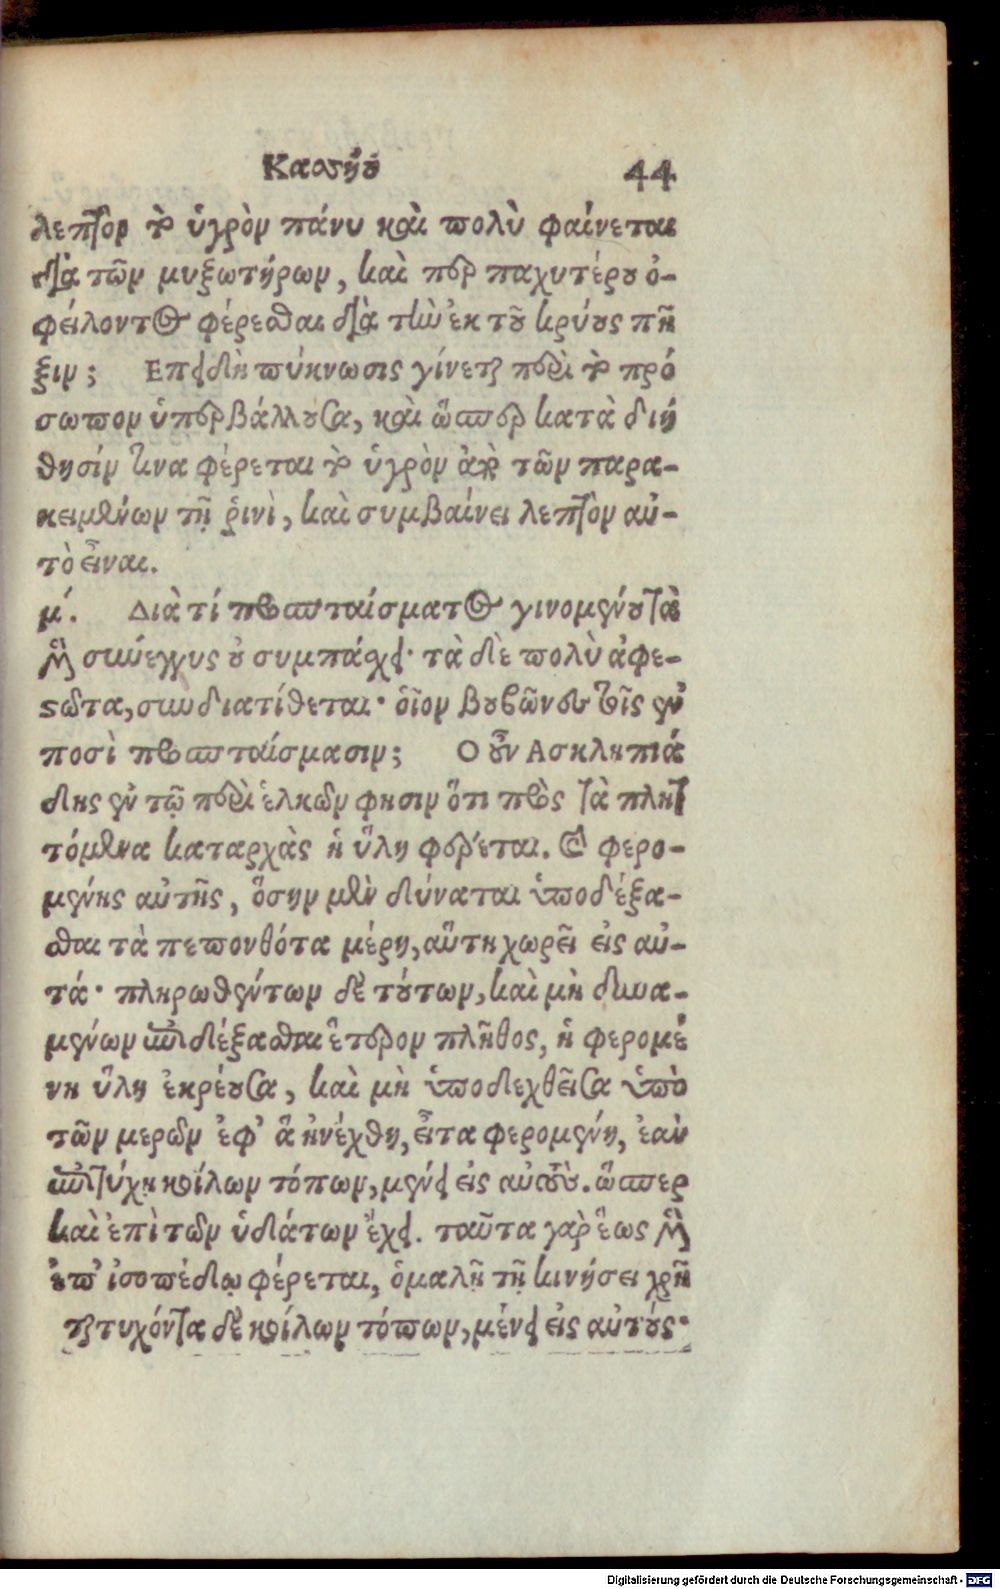 Κασσίου 44
λεπτὸν τὸ ὑγρὸν πάνυ καὶ πολὺ φαίνεται
διὰ τῶν μυξωτήρων, καὶ περ παχυτέρου ὀ-
φείλοντος φέρεσθαι διὰ τὴν ἐκ τοῦ κρύους πῆ
ξιν; Επειδὴ πύκνωσις γίνεται περὶ τὸ πρό
σωπον ὑπερβάλλουσα, καὶ ὥσπερ κατὰ διή
θησίν τινα φέρεται τὸ ὑγρὸν ἀπὸ τῶν παρα-
κειμένων τῇ ῥινὶ, καὶ συμβαίνει λεπτὸν αὐ-
τὸ εἶναι.
μ΄. Διὰ τί προσπταίσματος γινομένου τὰ
μὴ σωύεγγυς οὐ συμπάσχει· τὰ δὲ πολὺ ἀφε-
στῶτα, συνδιατίθεται· οἷον βουβῶνες τοῖς ἐν
ποσὶ προσπταίσμασιν; Ο οὖν Ασκληπιά
δης ἐν τῷ περὶ ἑλκῶν φησιν ὅτι πρὸς τὰ πλητ
τόμενα καταρχὰς ἡ ὕλη φέρεται. καὶ φερο-
μένης αὐτῆς, ὅσην μὲν δύναται ὑποδέξα-
σθαι τὰ πεπονθότα μέρη, αὕτη χωρεῖ εἰς αὐ-
τά· πληρωθέντων δὲ τούτων, καὶ μὴ δυνα-
μένων ἐπιδέξασθαι ἕτερον πλῆθος, ἡ φερομέ
νη ὕλη ἐκρέουσα, καὶ μὴ ὑποδεχθεῖσα ὑπὸ
τῶν μερῶν ἐφ’ ἃ ἠνέχθη, εἶτα φερομένη, ἐὰν
ἐπιτύχῃ κοίλων τόπων, μένει εἰς αὐτούς. ὥσπερ
καὶ ἐπὶ τῶν ὑδάτων ἔχει. ταῦτα γὰρ ἕως μὴ
ἐπ’ ἰσοπέδῳ φέρεται, ὁμαλῇ τῇ κινήσει χρῆ
ται τυχόντα δὲ κοίλων τόπων, μένει εἰς αὐτούς·
Digitalisierung gefördert durch die Deutsche Forschungsgemeinschaft - DFG